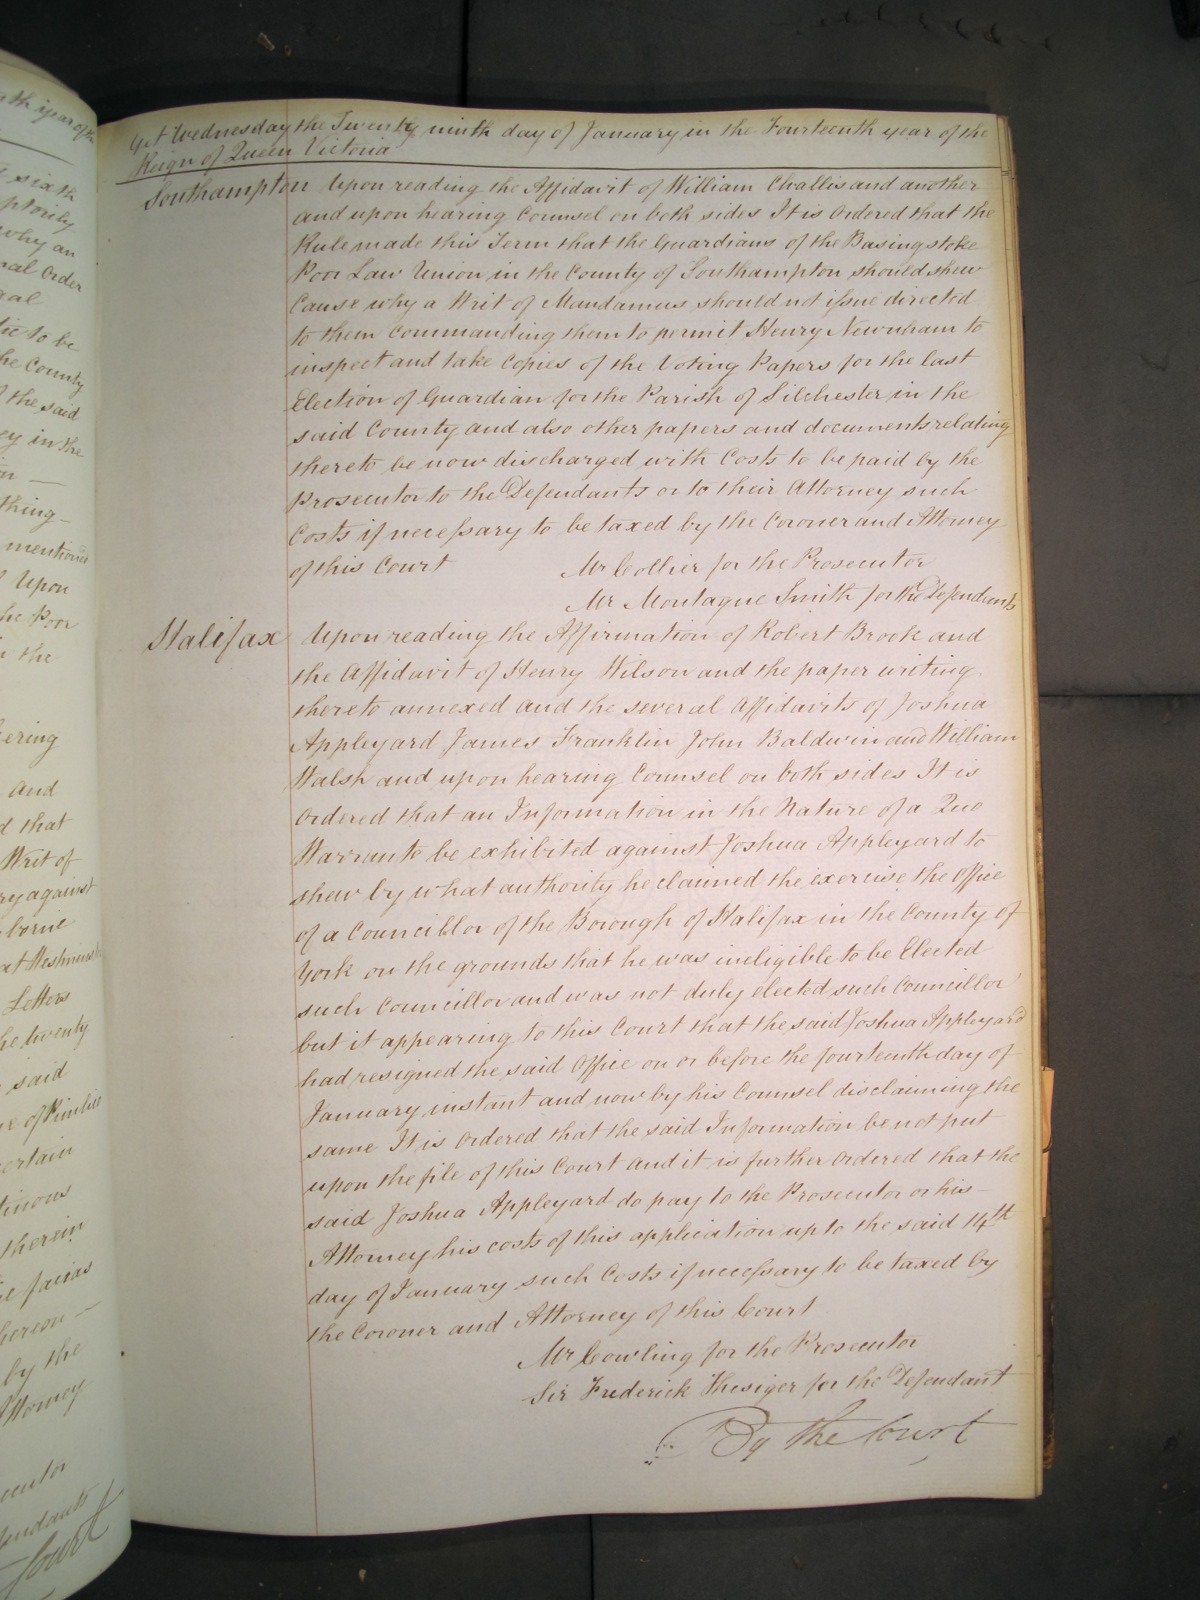 th year of the
sixth
why an
Order
tie to be
the County
the said
ey in the
thing
mentioned
Upon
the Poor
the
ering
and
d that
Writ of
ry against
borne
at Westminster
Letters
he twenty
said
certain
therein
facias
hereon
by the
Attorney
ecutor
fendants
Court
Yet Wednesday the Twenty ninth day of January in the Fourteenth year of the
Reign of Queen Victoria
Southampton Upon reading the Affidavit of William Challis and another
and upon hearing Counsel on both sides It is Ordered that the
Rule made this Term that the Guardians of the Basingstoke
Poor Law Union in the County of Southampton should shew
Cause why a Writ of Mandamus should not issue directed
to them Commanding them to permit Henry Newnham to
inspect and take Copies of the Voting Papers for the last
Election of Guardian for the Parish of Silchester in the
said County and also other papers and documents relating
thereto be now discharged with Costs to be paid by the
Prosecutor to the Defendants or to their Attorney such
Costs if necessary to be taxed by the Coroner and Attorney
of this Court Mr Collier for the Prosecutor
Mr Montague Smith for the Defendants
Halifax Upon reading the Affirmation of Robert Brook and
the Affidavit of Henry Wilson and the paper writing
thereto annexed and the several Affidavits of Joshua
Appleyard James Franklin John Baldwin and William
Walsh and upon hearing Counsel on both sides It is
Ordered that an Information in the Nature of a Quo
Warranto be exhibited against Joshua Appleyard to
shew by what authority he claimed the exercise the Office
of a Councillor of the Borough of Halifax in the County of
York on the grounds that he was ineligible to be Elected
such Councillor and was not duly elected such Councillor
but it appearing to this Court that the said Joshua Appleyard
had resigned the said Office on or before the fourteenth day of
January instant and now by his Counsel disclaiming the
same It is Ordered that the said Information be not put
upon the file of this Court and it is further Ordered that the
said Joshua Appleyard do pay to the Prosecutor or his
Attorney his costs of this application up to the said 14th
day of January such Costs if necessary to be taxed by
the Coroner and Attorney of this Court
Mr Cowling for the Prosecutor
Sir Frederick Thesiger for the Defendant
By the Court